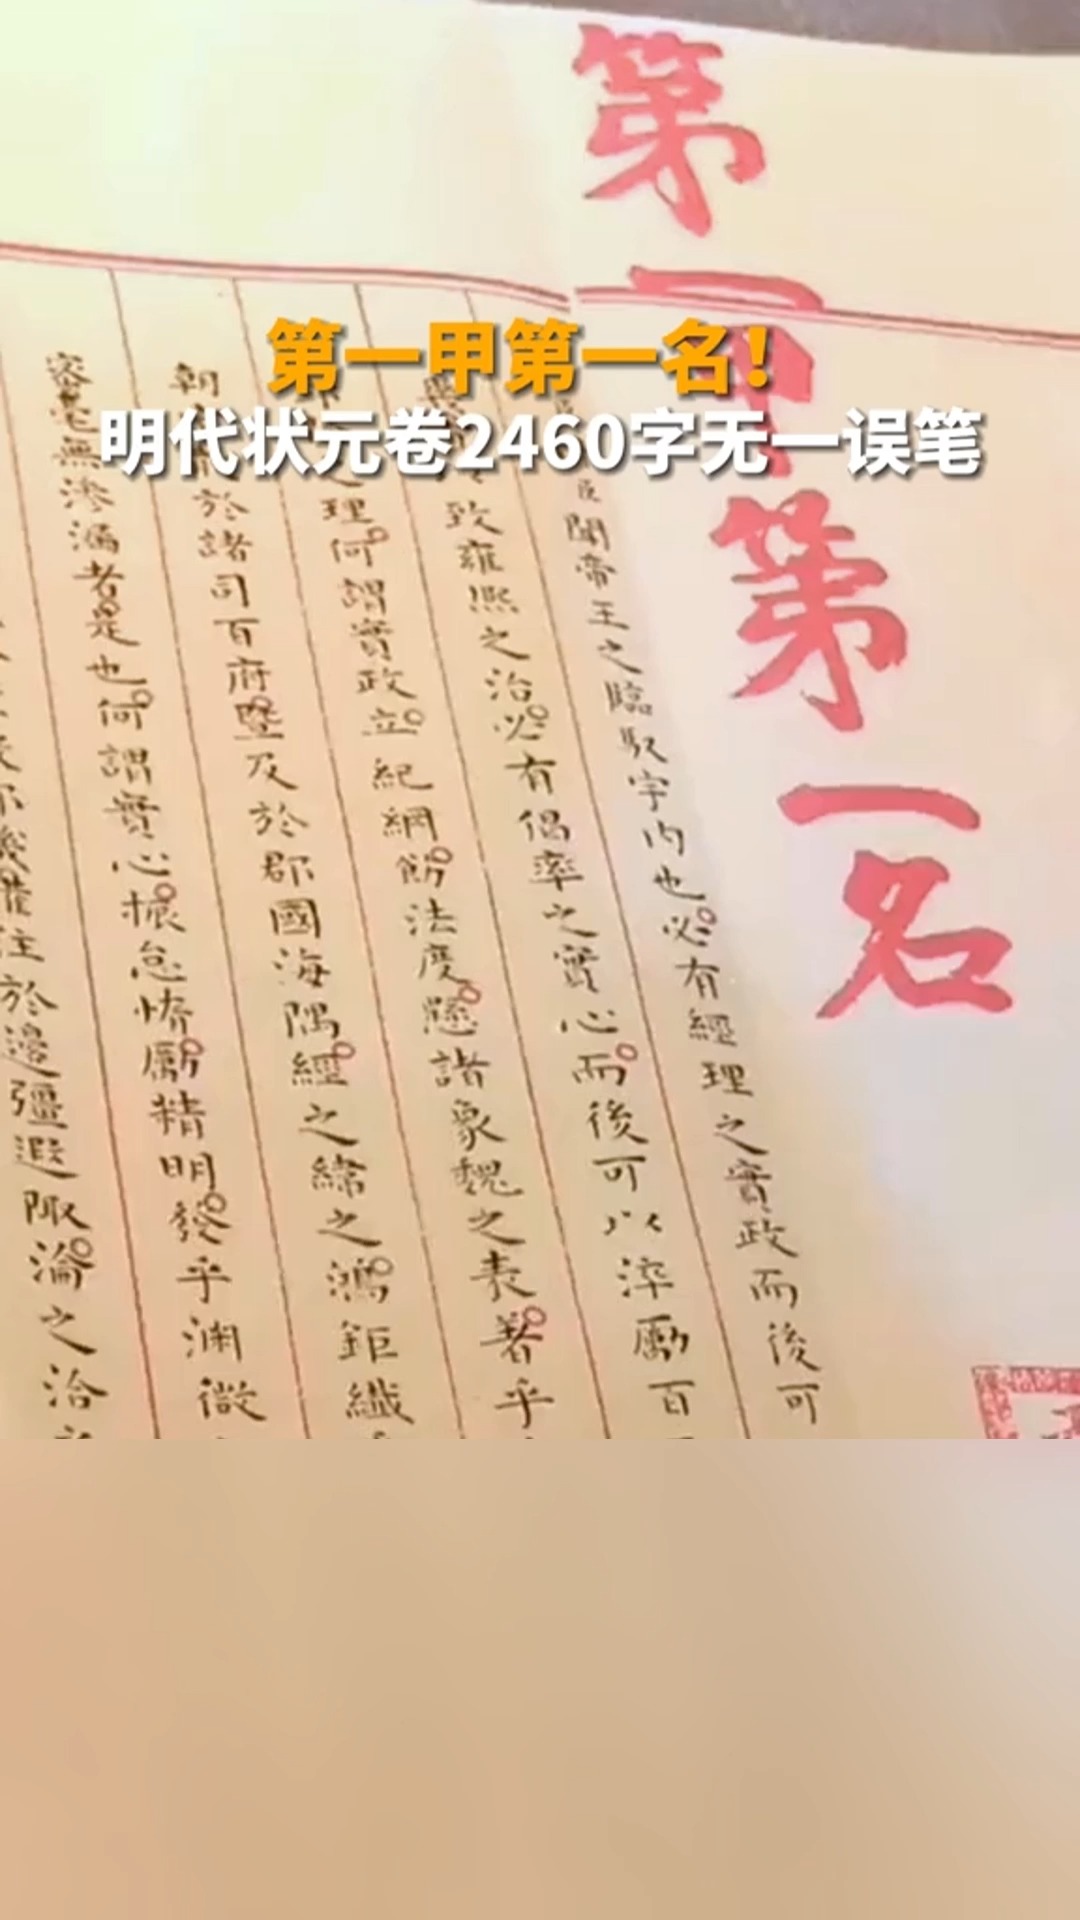 第一甲第一名！
明代状元卷2460字无一误笔
第一甲第一名
臣聞帝王之臨馭宇内也必有經理之實政而後可
致雍熙之治必有倡率之實心而後可以淬厲百
理何謂實政立紀綱飭法度懸諸象魏之表著乎
朝
於諸司百府暨及於郡國海隅經之緯之鴻鉅纖
容毫無滲漏者是也何謂實心振怠惰勵精明發乎淵微
注於邊疆遐陬淪之洽